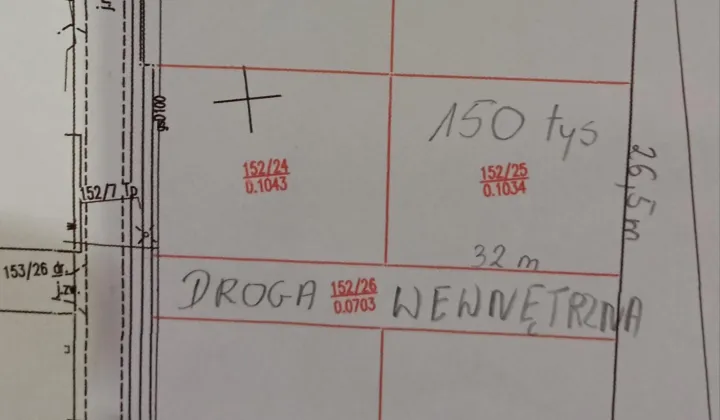 150 tys
152/24
0.1043
152/25
0.1034
26,5 m
152/7 Tp
32 m
153/26 dr.
DROGA 152/26 WEWNĘTRZNA
0.0703